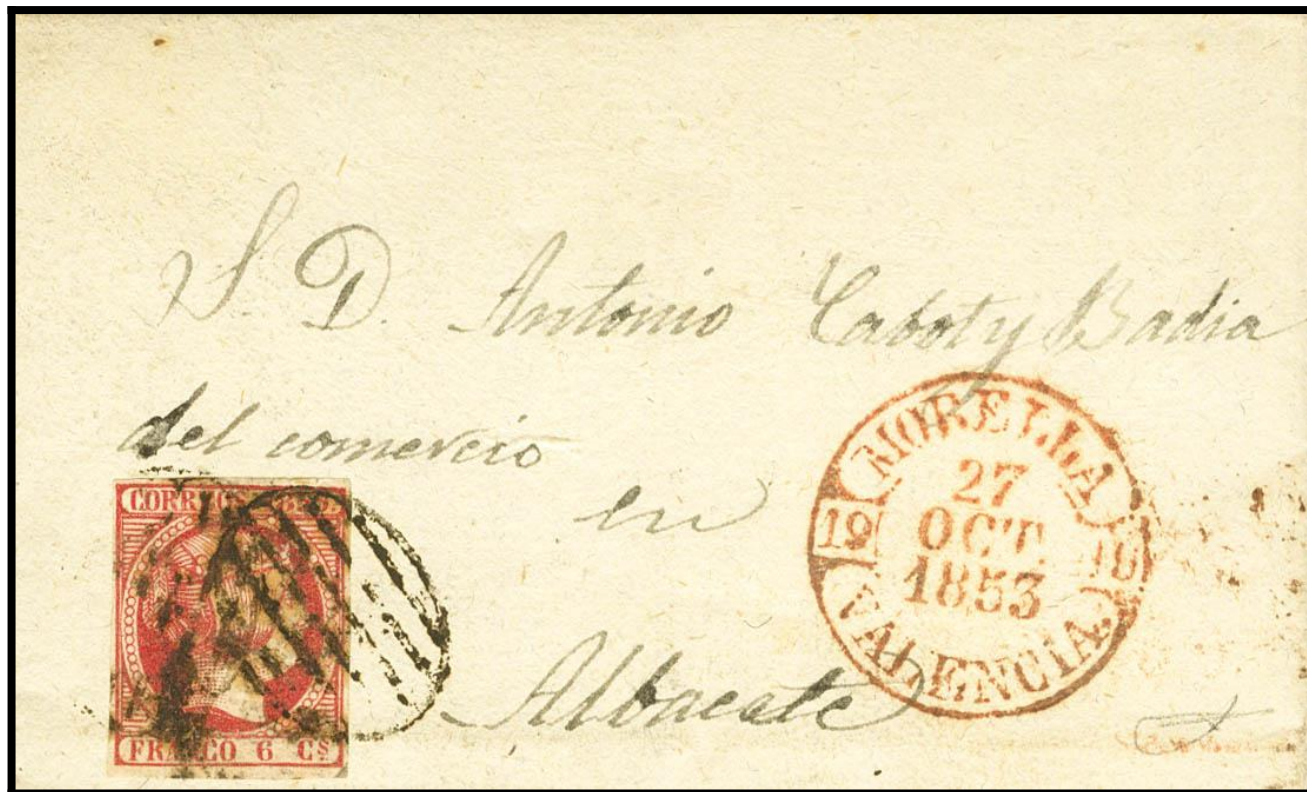 S. D. Antonio Cabot y Badia
del comercio
en
Albacete
MORELLA
19
27
OCT.
1853
VALENCIA.
CORREOS
FRANCO 6 Cs